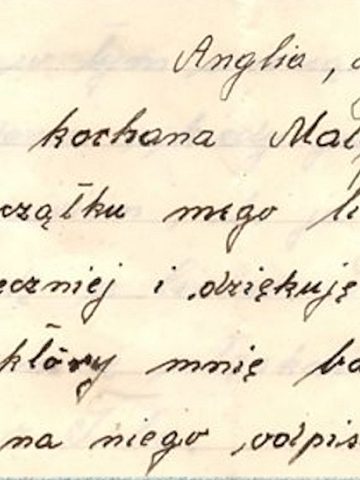 Anglia,
kochana Mał
czątku mego li
ęczniej i dziękuję
który mnię ba
na niego odpis